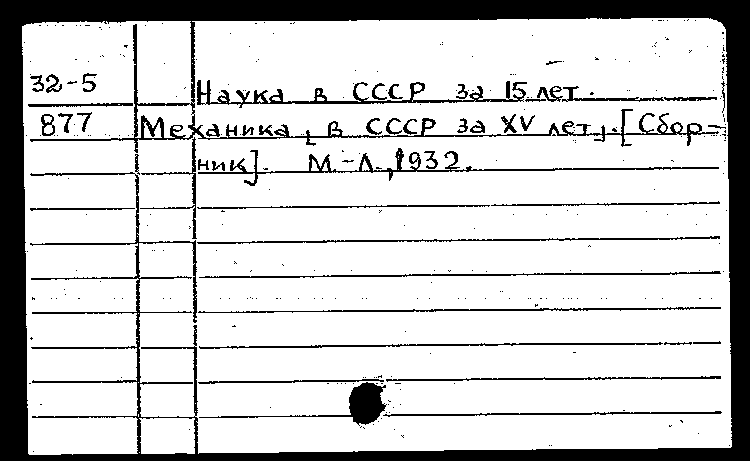 32-5 Наука в СССР за 15 лет.
877 Механика [ в СССР за XV лет ]. [Сбор=
ник]. М.-Л., 1932.